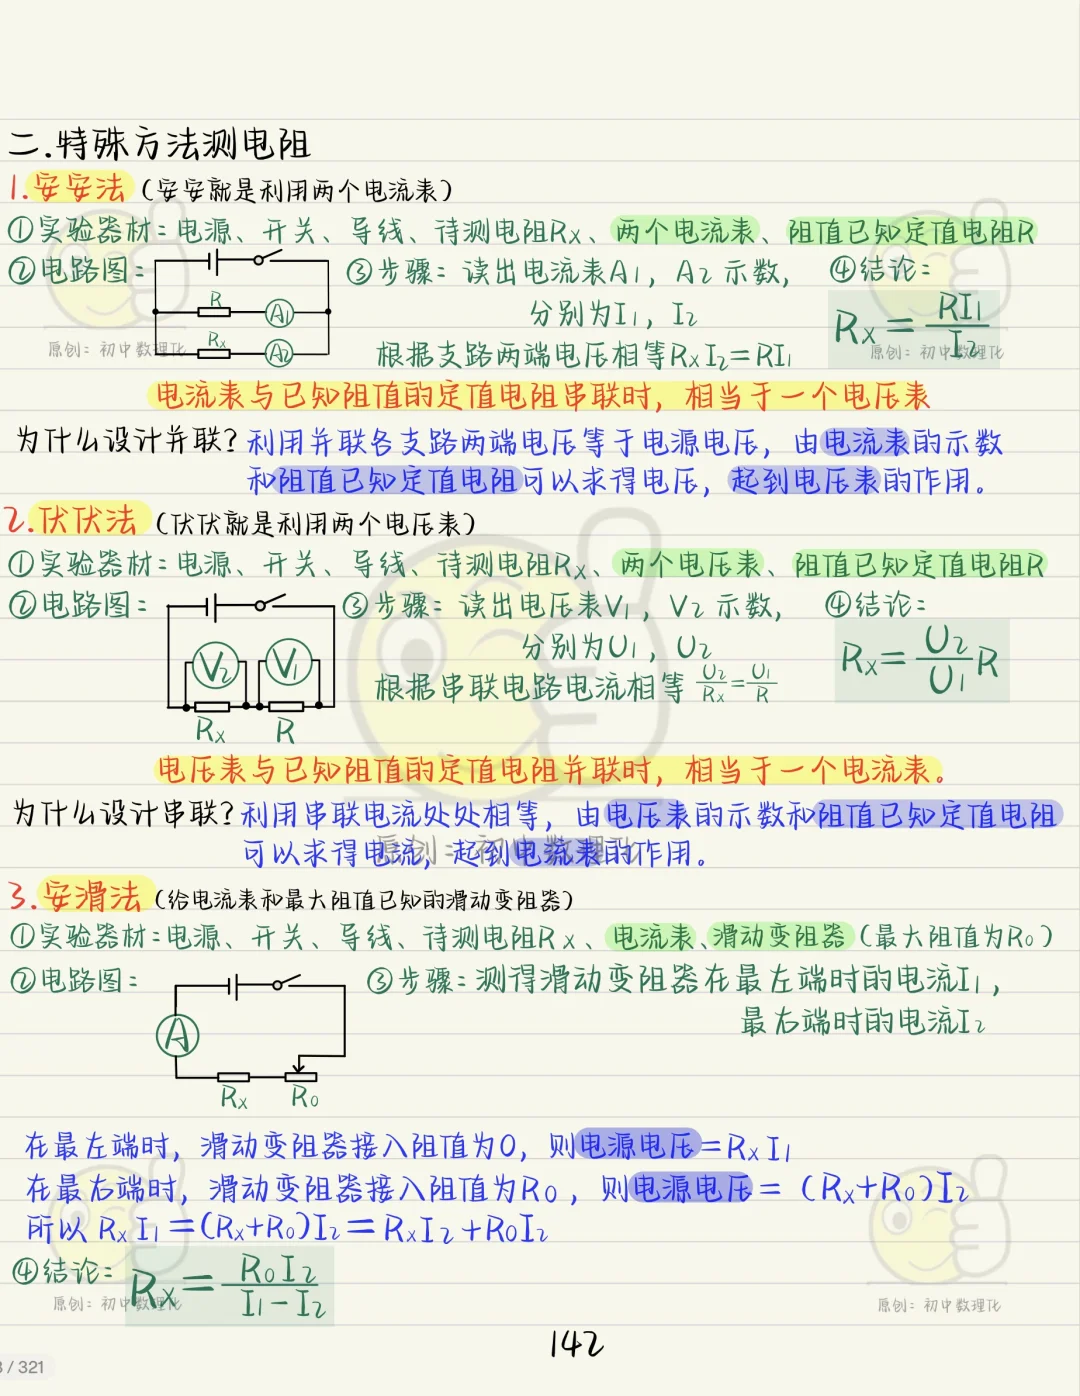 二.特殊方法测电阻
1.安安法(安安就是利用两个电流表)
①实验器材:电源、开关、导线、待测电阻Rx、两个电流表、阻值已知定值电阻R
②电路图:
R A1
Rx A2
③步骤:读出电流表A1,A2示数,
分别为I1,I2
根据支路两端电压相等RxI2=RI1
④结论:
Rx=RI1/I2
原创:初中数理化
原创:初中数理化
电流表与已知阻值的定值电阻串联时,相当于一个电压表
为什么设计并联?利用并联各支路两端电压等于电源电压,由电流表的示数
和阻值已知定值电阻可以求得电压,起到电压表的作用。
2.伏伏法(伏伏就是利用两个电压表)
①实验器材:电源、开关、导线、待测电阻Rx、两个电压表、阻值已知定值电阻R
②电路图:
V2 V1
Rx R
③步骤:读出电压表V1,V2示数,
分别为U1,U2
根据串联电路电流相等 U2/Rx=U1/R
④结论:
Rx=U2/U1 R
电压表与已知阻值的定值电阻并联时,相当于一个电流表。
为什么设计串联?利用串联电流处处相等,由电压表的示数和阻值已知定值电阻
可以求得电流,起到电流表的作用。
原创:初中数理化
3.安滑法(给电流表和最大阻值已知的滑动变阻器)
①实验器材:电源、开关、导线、待测电阻Rx、电流表、滑动变阻器(最大阻值为R0)
②电路图:
A
Rx R0
③步骤:测得滑动变阻器在最左端时的电流I1,
最右端时的电流I2
在最左端时,滑动变阻器接入阻值为0,则电源电压=RxI1
在最右端时,滑动变阻器接入阻值为R0,则电源电压=(Rx+R0)I2
所以RxI1=(Rx+R0)I2=RxI2+R0I2
④结论:Rx=R0I2/I1-I2
原创:初中数理化
原创:初中数理化
142
/ 321